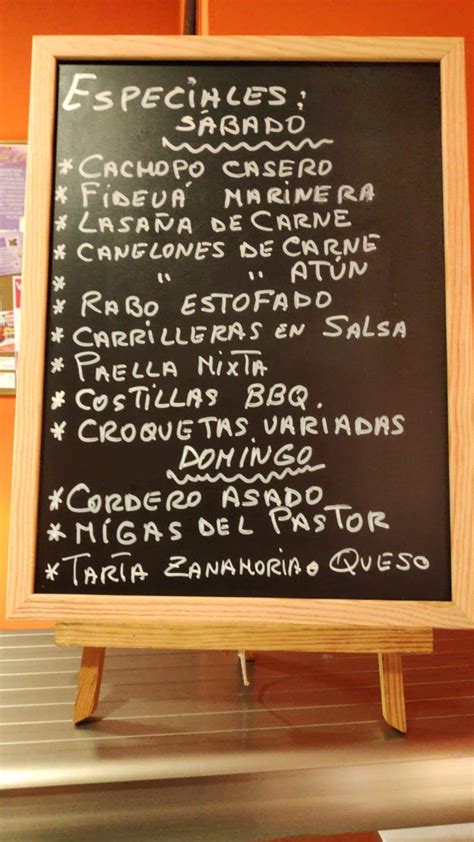 ESPECIALES:
SÁBADO
* CACHOPO CASERO
* FIDEUÁ MARINERA
* LASAÑA DE CARNE
* CANELONES DE CARNE
* " " ATÚN
* RABO ESTOFADO
* CARRILLERAS EN SALSA
* PAELLA MIXTA
* COSTILLAS BBQ.
* CROQUETAS VARIADAS
DOMINGO
* CORDERO ASADO
* MIGAS DEL PASTOR
* TARTA ZANAHORIA O QUESO